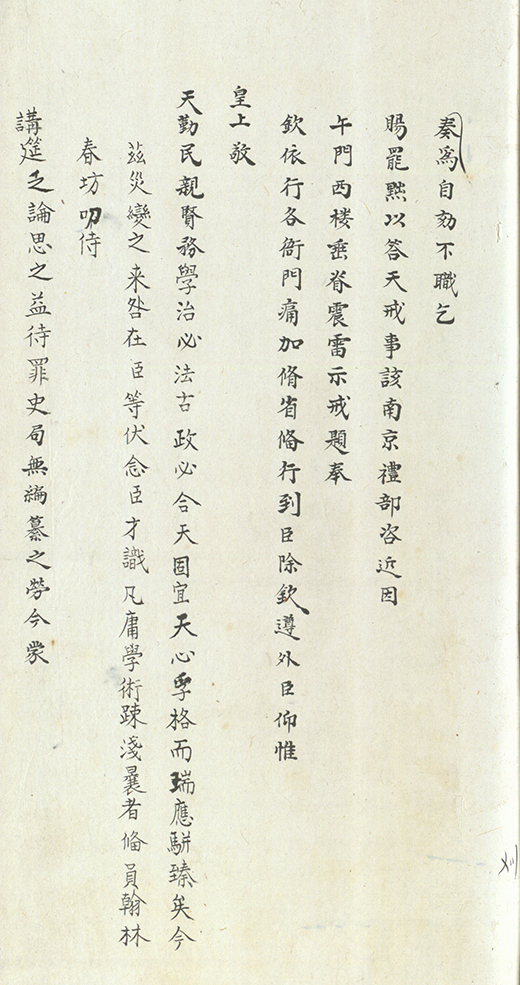 奏爲自劾不職乞
賜罷黜以答天戒事該南京禮部咨近因
午門西楼垂脊震雷示戒題奉
欽依行各衙門痛加脩省俻行到臣除欽遵外臣仰惟
皇上敬
天勤民親賢務學治必法古政必合天固宜天心孚格而瑞應駢臻矣今
茲災變之来咎在臣等伏念臣才識凡庸學術踈淺曩者俻員翰林
春坊叨侍
講筵乏論思之益待罪史局無編纂之勞今蒙